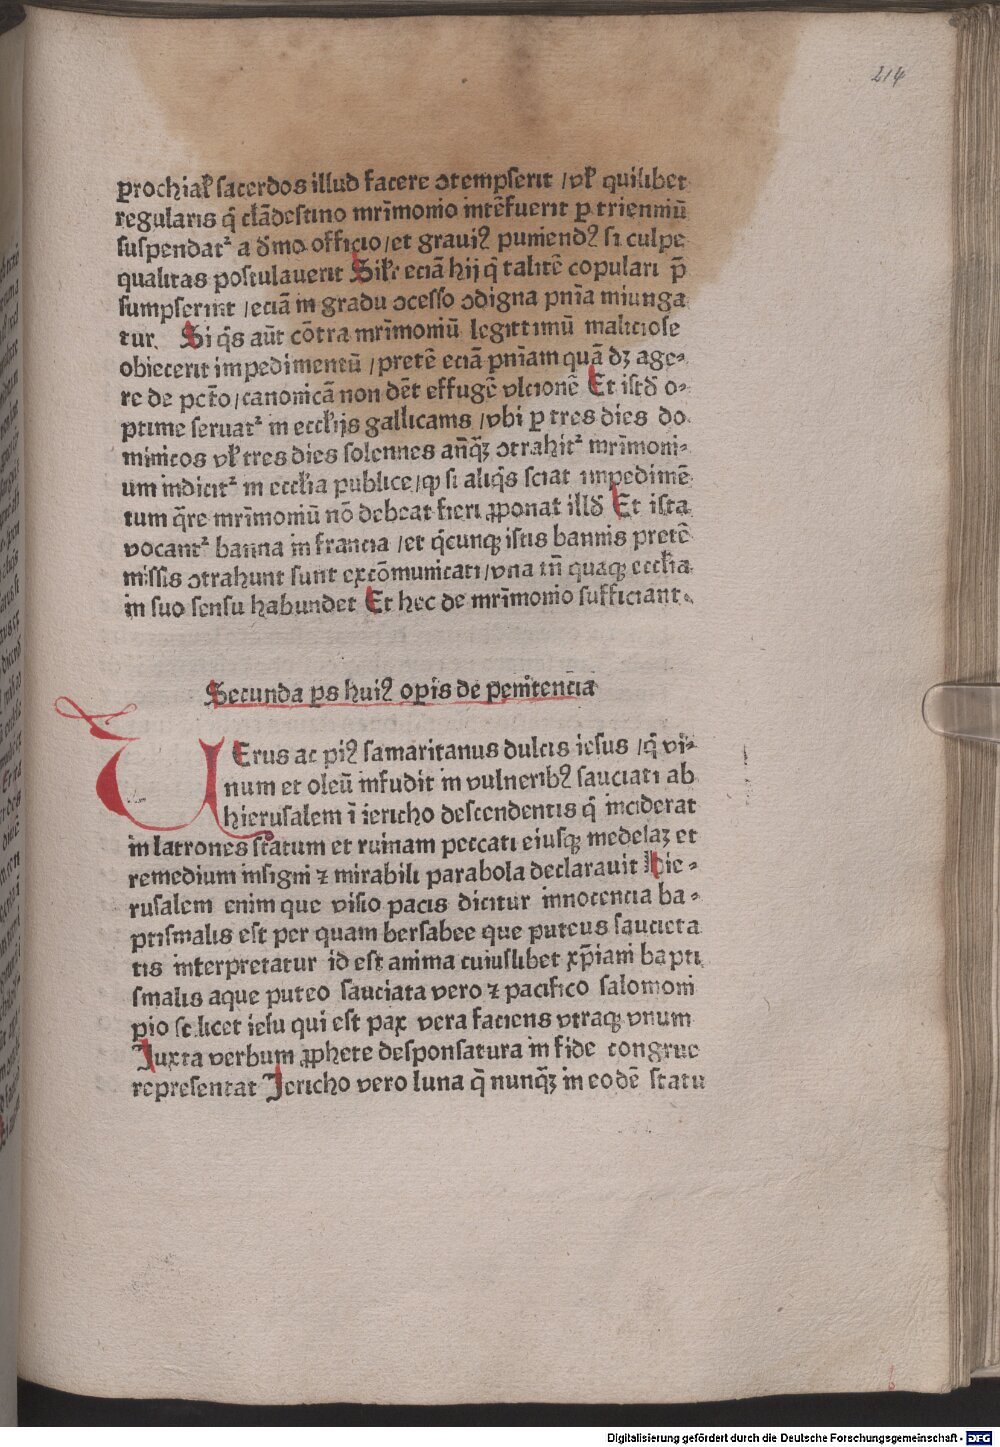 214
prochiaƚ sacerdos illud facere ↄtempserit / vƚ quilibet
regularis q̄ clādestino mr̄imonio intēfuerit p trienniū
suspendat᷑ a dm̄o officio / et graui⁹ puniend⁹ si culpe
qualitas postulauerit Sikr̄ eciā hij q̄ talitē copulari p̄
sumpserint / eciā in gradu ↄcesso ↄdigna pn̄ia miunga
tur. Si q̄s aūt cōtra mr̄imoniū legittimū maliciose
obiecerit impedimentū / pretē eciā pn̄iam quā dʒ age⸗
re de pct̄o / canonicā non dēt effugē vlcionē Et istd̄ o⸗
ptime seruat᷑ in eccƚijs gallicams / vbi p tres dies do
minicos vƚ tres dies solennes an̄qʒ̄ ↄtrahit᷑ mr̄imoni⸗
um indicit᷑ in eccƚia publice / ꝙ si aliq̄s sciat impedimē
tum q̄re mr̄imoniū nō debeat fieri ꝓponat illd̄ Et ista
vocant᷑ banna in francia / et q̄cunqꝫ istis bannis pretē
missis ↄtrahunt sunt excōmunicati / vna tn̄ quaqꝫ eccƚia
in suo sensu habundet Et hec de mr̄imonio sufficiant.
Secunda ps hui⁹ opīs de penitencia
VErus ac pi⁹ samaritanus dulcis iesus / q̄ vi⸗
num et oleū infudit in vulnerib⁹ sauciati ab
hierusalem ī iericho descendentis q̄ inciderat
in latrones statum et ruinam peccati eiusqꝫ medelaʒ et
remedium insigni ⁊ mirabili parabola declarauit Hie⸗
rusalem enim que visio pacis dicitur innocencia ba⸗
ptismalis est per quam bersabee que puteus saucieta
tis interpretatur id est anima cuiuslibet xp̄iam bapti
smalis aque puteo sauciata vero ⁊ pacifico salomoni
pio scilicet iesu qui est pax vera faciens vtraqꝫ vnum
Iuxta verbum ꝓphete desponsatura in fide congrue
representat Jericho vero luna q̄ nunqʒ̄ in eodē statu
b
Digitalisierung gefördert durch die Deutsche Forschungsgemeinschaft - DFG